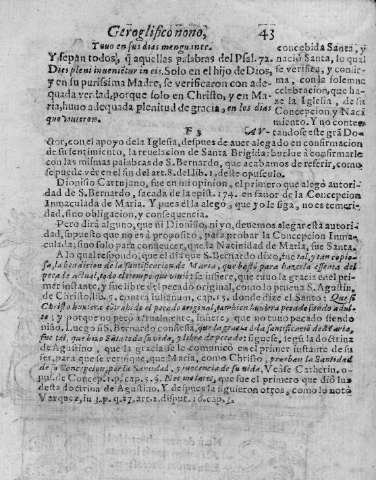 Geroglifico nono, 43
Tuuo en sus dias menguante.
Y sepan todos, q̃ aquellas palabras del Psal. 72.
Dies pleni invenietur in eis. Solo en el hijo de Dios,
y en su purissima Madre, se verificaron con ade-
quada verdad, porque solo en Christo, y en Ma-
ria, huuo adequada plenitud de gracia, en los dias
que viuieron.
concebida Santa, y
nació Santa, lo qual
se verifica, y confir-
ma, con la solemne
celebracion, que ha-
ze la Iglesia, de la
Concepcion y Naci-
miento. Y no conten-
tandose este grā Do-
F 3 AV-
ctor, con el apoyo de la Iglesia, despues de auer alegado en confirmacion
de su sentimiento, la reuelacion de Santa Brigida: buelue à confirmarle
con las mismas palabras de S. Bernardo, que acabamos de referir, como
se puede ver en el fin del art. 8. del lib. 1. deste opusculo.
Dionisio Cartujano, fue en mi opinion, el primero que alegò autori-
dad de S. Bernardo, sacada de la epist. 174. en fauor de la Concepcion
Inmaculada de Maria. Y pues él la alegò, que yo le siga, no es temeri-
dad, sino obligacion, y consequencia.
Pero dirà alguno, que ni Dionisio, ni yo, deuemos alegar està autori-
dad, supuesto que no es à proposito, para probar la Concepcion Inma-
culada; sino solo para conuencer, que la Natiuidad de Maria, fue Santa.
Al qual respondo, que el dia que S. Bernardo dixo, fue tal, y tan copio-
sa, la bendicion de la santificacion de Maria, que bastò para hazerla essenta del
pecado actual, todo el tiempo que viuiò: se infiere, que tuuo la gracia en el pri-
mer instante, y fue libre del pecado original, como lo prueua S. Agustin,
de Christo, lib. 5. contra Iulianum, cap. 15. donde dize el Santo: Que si
Christo huuiera contrahido pecado original, tambien huuiera pecado siendo adul-
to: y porque no pecò actualmente, infiere, que no tuuo pecado siendo
niño. Luego si S. Bernardo confiessa, que la gracia de la santificacion de Maria,
fue tal, que hizo Santa toda su vida, y libre de pecado: siguese, segū la doctrina
de Agustino, que la gracia se le comunicò en el primer instante de su
ser, para que se verifique, que Maria, como Christo, prueban la Santidad
de su Concepcion, por la Santidad, y inocencia de su vida. Vease Catherin. o-
pusc. de Concep. 1. p. cap. 5. §. Nec me latet, que fue el primero que diò luz
desta doctrina de Agustino. Y despues le siguieron otros, como lo notò
Vazquez, in 3. p. q. 27. art. 2. disput. 116. cap. 3.